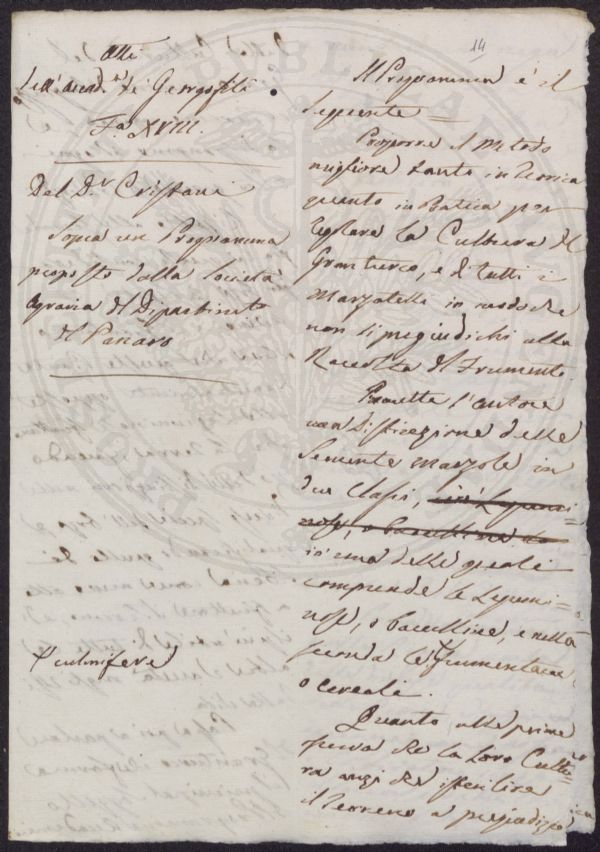 14
Atti
dell'Accad.a de' Georgofili
F.a XVIII.
Del D.r Cristani
Sopra un Programma
proposto dalla Società
Agraria del Dipartimento
del Panaro
culmifere
Il Programma è il
seguente =
Proporre il metodo
migliore tanto in Teorica
quanto in Pratica per
regolare la Cultura del
Granturco, e di tutti i
Marzatelli in modo che
non si pregiudichi alla
Raccolta del Frumento
l'autore
delle
Semente Marzole in
due Classi,
o baccelline
in una delle quali
comprende le Legumi=
nose, o baccelline, e nella
seconda le frumentacee
o cereali.
Quanto alle prime
pensa che la loro Cultu=
ra anzi che isterilire
il terreno a pregiudizio